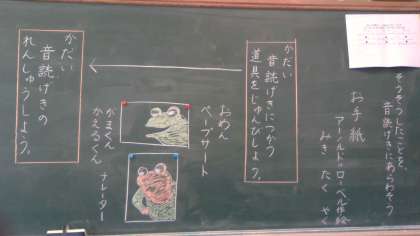 そうぞうしたことを、
音読げきにあらわそう
お手紙
アーノルド=ローベル作・絵
みき たく やく
かだい
音読げきにつかう
道具をじゅんびしよう。
おめん
ペープサート
がまくん
かえるくん
ナレーター
かだい
音読げきの
れんしゅうしよう。